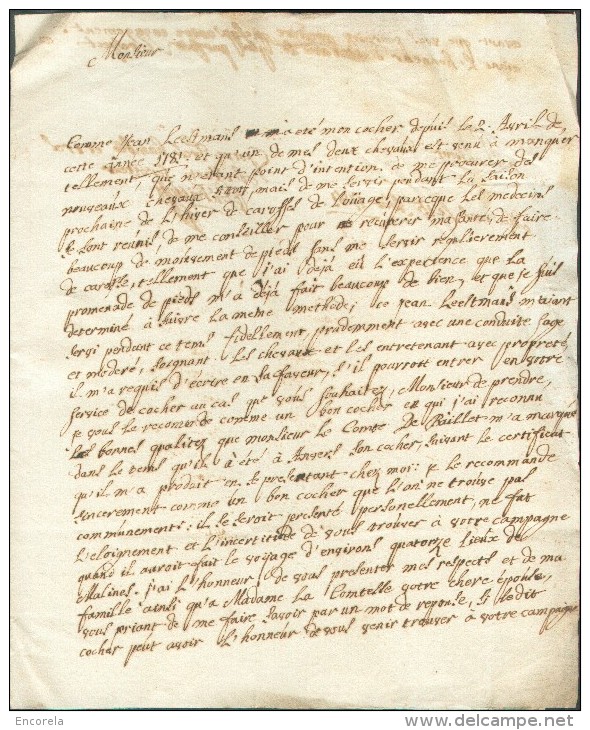 Monsieur
Comme Jean Leestmans m'a été mon cocher depuis le 2. Avril de
cette année 1781. et qu'un de mes deux chevaux est venu à manquer
tellement, que n'etant point d'intention de me procurer des
nouveaux chevaux, mais de me servir pendant la saison
prochaine de L'hiver de carosses de Loüage, parceque Les medecins
se sont réunis, de me conseiller pour recuperer ma santé, de faire
beaucoup de mouvement de pieds sans me servir
de carosse, tellement que j'ai déjà eû L'experience que La
promenade de pieds m'a déjà fait beaucoup de bien, et que je suis
determiné à suivre La meme methode; ce jean Leestmans m'aiant
servi pendant ce tems fidellement, prudemment avec une conduite sage
et moderé, soignant Les chevaux et les entretenant avec propreté,
il m'a requis d'écrire en sa faveur, s'il pourrott entrer en votre
service de cocher au cas que vous souhaitez, Monsieur de prendre,
je vous Le recommende comme un bon cocher et qui j'ai reconnu
Les bonnes qualitez que monsieur Le Comte De Baillet m'a marqué
dans le tems qu'il à été à Anvers son cocher, suivant le certificat
qu'il m'a produit en se presentant chez moi: je le recommande
sincerement comme un bon cocher que l'on ne trouve pas
communement: il se seroit presenté personellement, ne fut
L'eloignement et L'incertitude de vous trouver à votre campagne
quand il auroit fait le voÿage d'environs quatorze Lieux de
Malines. j'ai L'honneur de vous presenter mes respects et de ma
famille ainsi qu'a Madame La Comtesse votre chere épouse,
vous priant de me faire savoir par un mot de reponse, si ledit
cocher peut avoir L'honneur de vous venir trouver à votre campagne
Encorela
www.delcampe.net